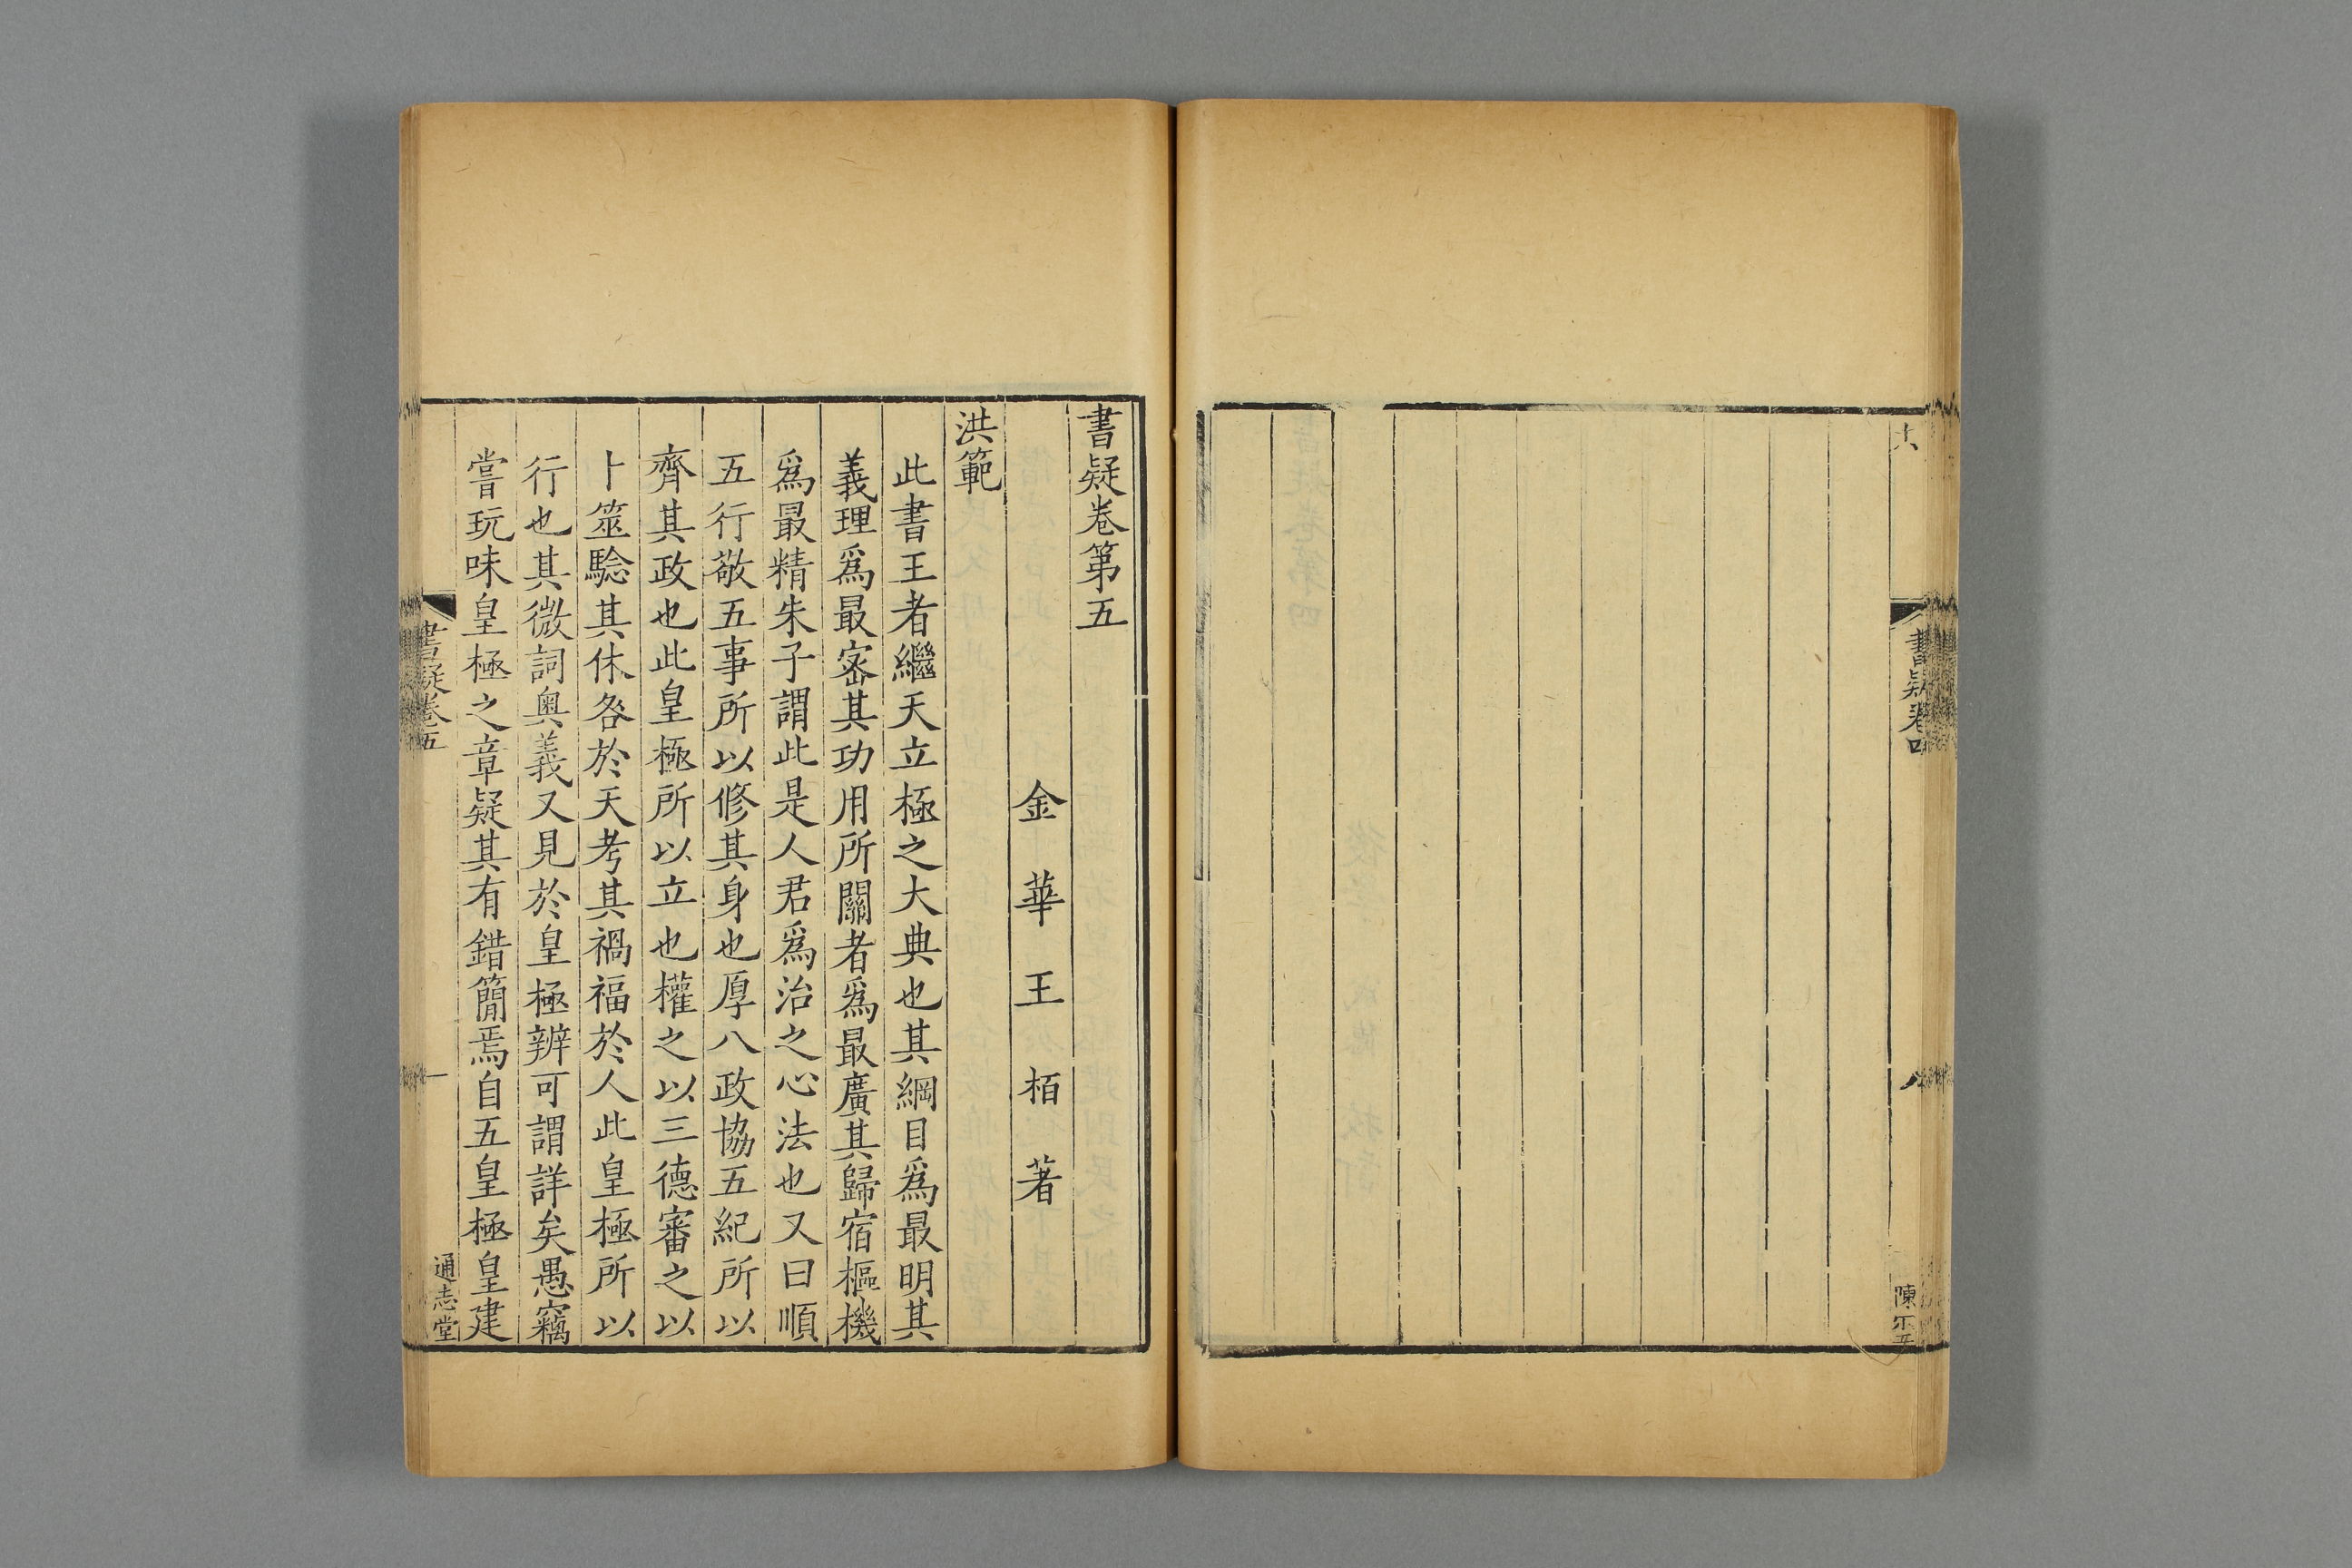 書疑卷四
八
書疑卷第五
金華王栢著
洪範
此書王者繼天立極之大典也其綱目爲最明其
義理爲最宻其功用所關者爲最廣其歸宿樞機
爲最精朱子謂此是人君爲治之心法也又曰順
五行敬五事所以修其身也厚八政協五紀所以
齊其政也此皇極所以立也權之以三德審之以
卜筮驗其休咎於天考其禍福於人此皇極所以
行也其微詞奧義又見於皇極辨可謂詳矣愚竊
嘗玩味皇極之章疑其有錯簡焉自五皇極皇建
書疑卷五
一
通志堂